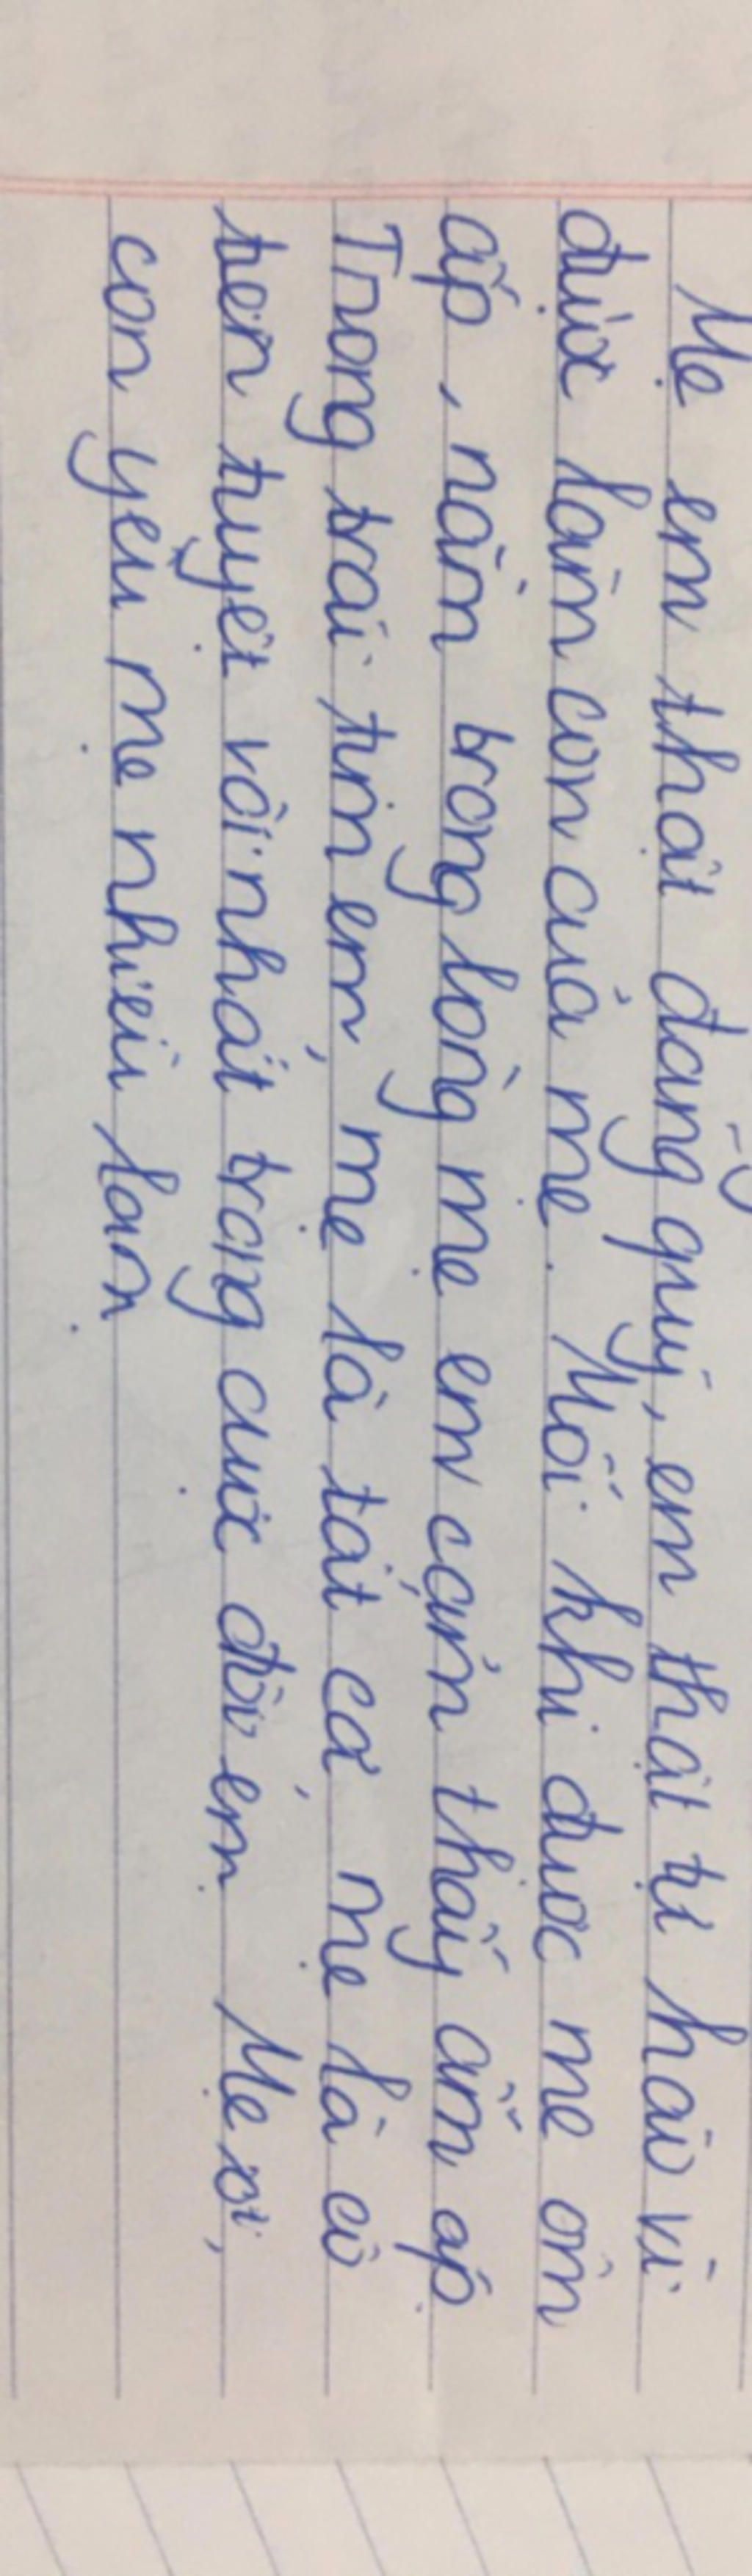 Mẹ em thật đáng quý, em thật tự hào vì
được làm con của mẹ. Mỗi khi được mẹ ôm
ấp, nằm trong lòng mẹ em cảm thấy ấm áp.
Trong trái tim em, mẹ là tất cả, mẹ là cô
tiên tuyệt vời nhất trong cuộc đời em. Mẹ ơi,
con yêu mẹ nhiều lắm.